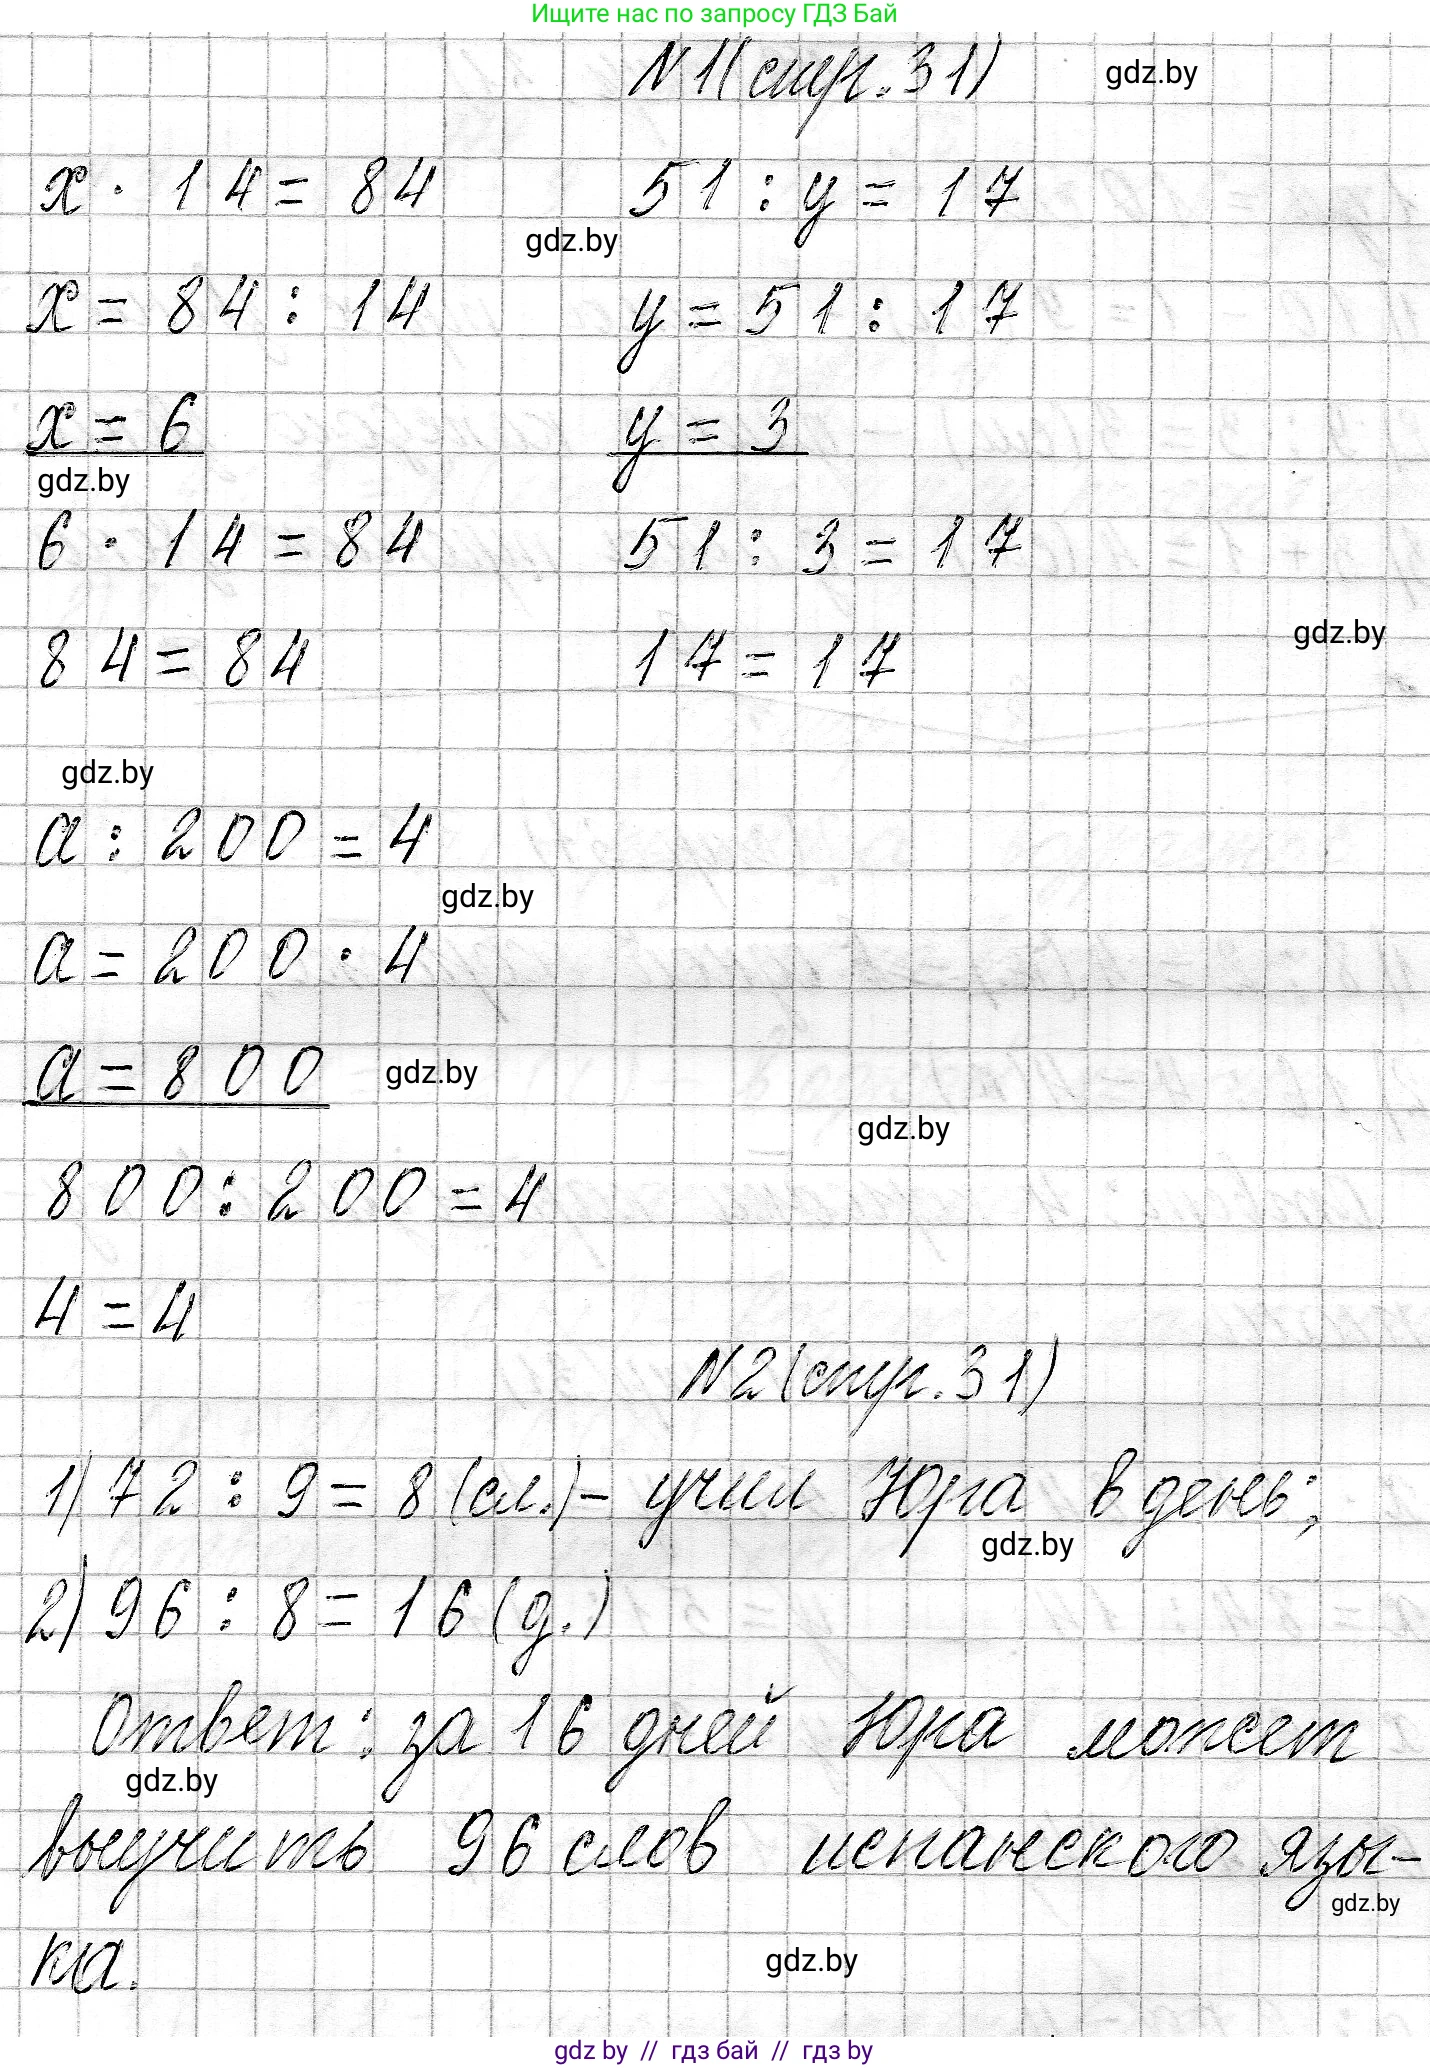 Ищите нас по запросу ГДЗ Бай
N1(стр.31)
gdz.by
x · 14 = 84
51 : y = 17
gdz.by
x = 84 : 14
y = 51 : 17
x = 6
y = 3
gdz.by
6 · 14 = 84
51 : 3 = 17
gdz.by
84 = 84
17 = 17
gdz.by
a : 200 = 4
gdz.by
a = 200 · 4
a = 800
gdz.by
gdz.by
800 : 200 = 4
4 = 4
N2(стр.31)
1) 72 : 9 = 8 (сл.) – учил Юра в день;
gdz.by
2) 96 : 8 = 16 (д.)
Ответ: за 16 дней Юра может
gdz.by
выучить 96 слов испанского язы-
gdz.by
ка.
gdz.by
gdz.by // гдз бай // гдз by